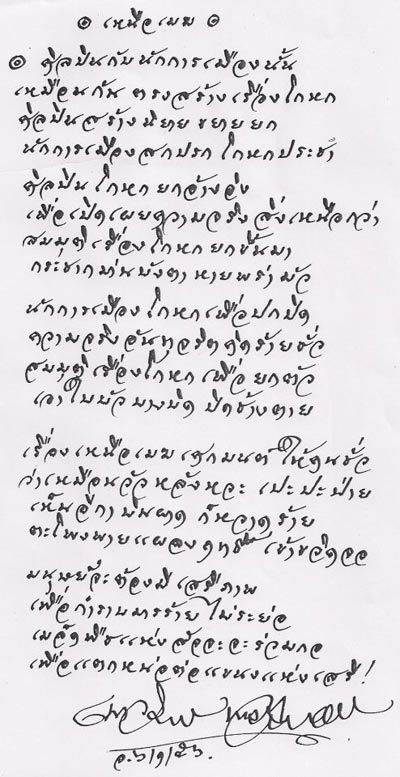 ๏ เหนือเมฆ ๏
๏ ศิลปินกับนักการเมืองนั้น
เหมือนกัน ตรงสร้างเรื่องโกหก
ศิลปินสร้างนิยาย ขยายยก
นักการเมืองสกปรก โกหกประจำ
ศิลปิน โกหก ยกอ้างอิง
เพื่อเปิดเผยความจริง สิ่งเหนือกว่า
สมมุติเรื่องโกหก ยกขึ้นมา
กระชากม่านบังตา หายพร่ามัว
นักการเมือง โกหก เพื่อปกปิด
ความจริงอันทุจริต คิดร้ายชั่ว
สมมุติ เรื่องโกหก เพื่อ ยกตัว
เอาใบบัว มาปิด ช้างตาย
เรื่องเหนือเมฆ เสกมนต์ ให้คนชั่ว
ว่าเหมือนวัว หลังหวะ เปะปะป่าย
เห็นอีกา บินผาด ก็หวาดร้าย
ตะโพงพาย แผลง เข้าขวิด
มนุษย์จะต้องมี เสรีภาพ
เพื่อกำราบมารร้าย ไม่ระย่อ
เมล็ดพืชแห่งสัจจะจะร่วมกอ
เพื่อแตกหน่อต่อแขนงแห่งเสรี!